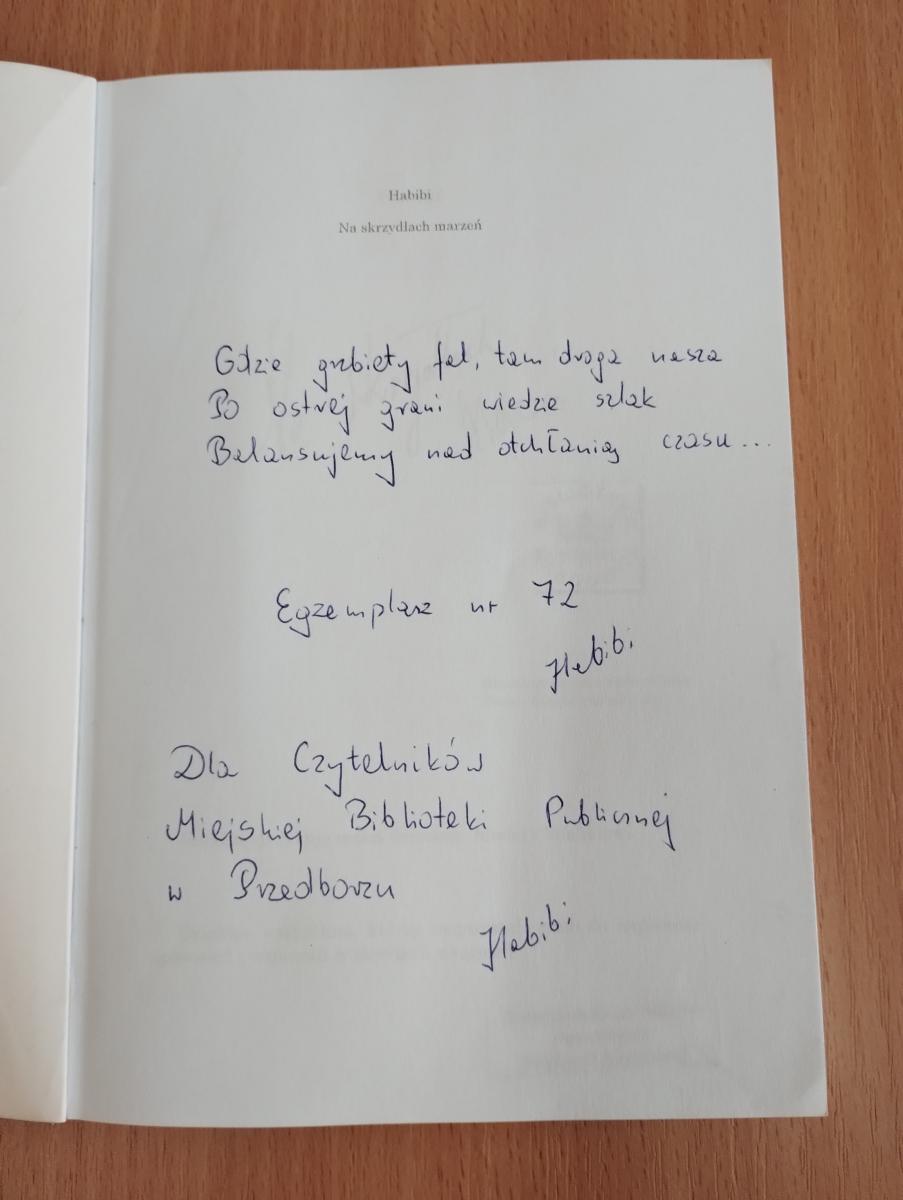 Habibi
Na skrzydłach marzeń
Gdzie grzbiety fal, tam droga nasza
Po ostrej grani wiedzie szlak
Balansujemy nad otchłanią czasu...
Egzemplarz nr 72
Habibi
Dla Czytelników
Miejskiej Biblioteki Publicznej
w Przedborzu
Habibi